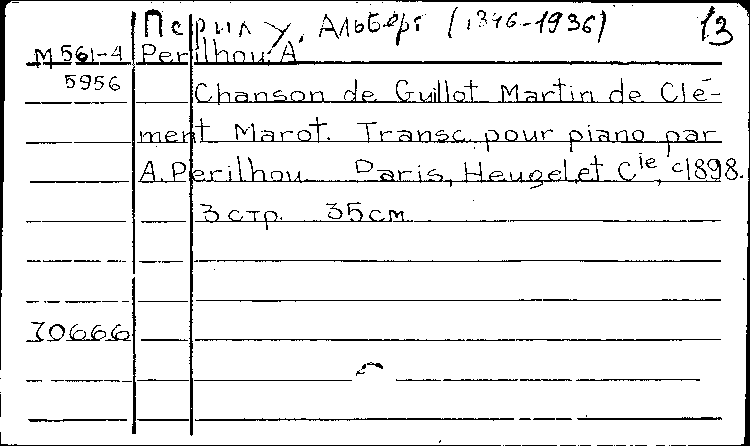 Перилу, Альберт (1846-1936) 13
М 561-4 Perilhou, A
5956 Chanson de Guillot Martin de Clé-
ment Marot. Transc. pour piano par
A. Perilhou Paris, Heugel et Cie, c1898.
3 стр. 35 см
70666